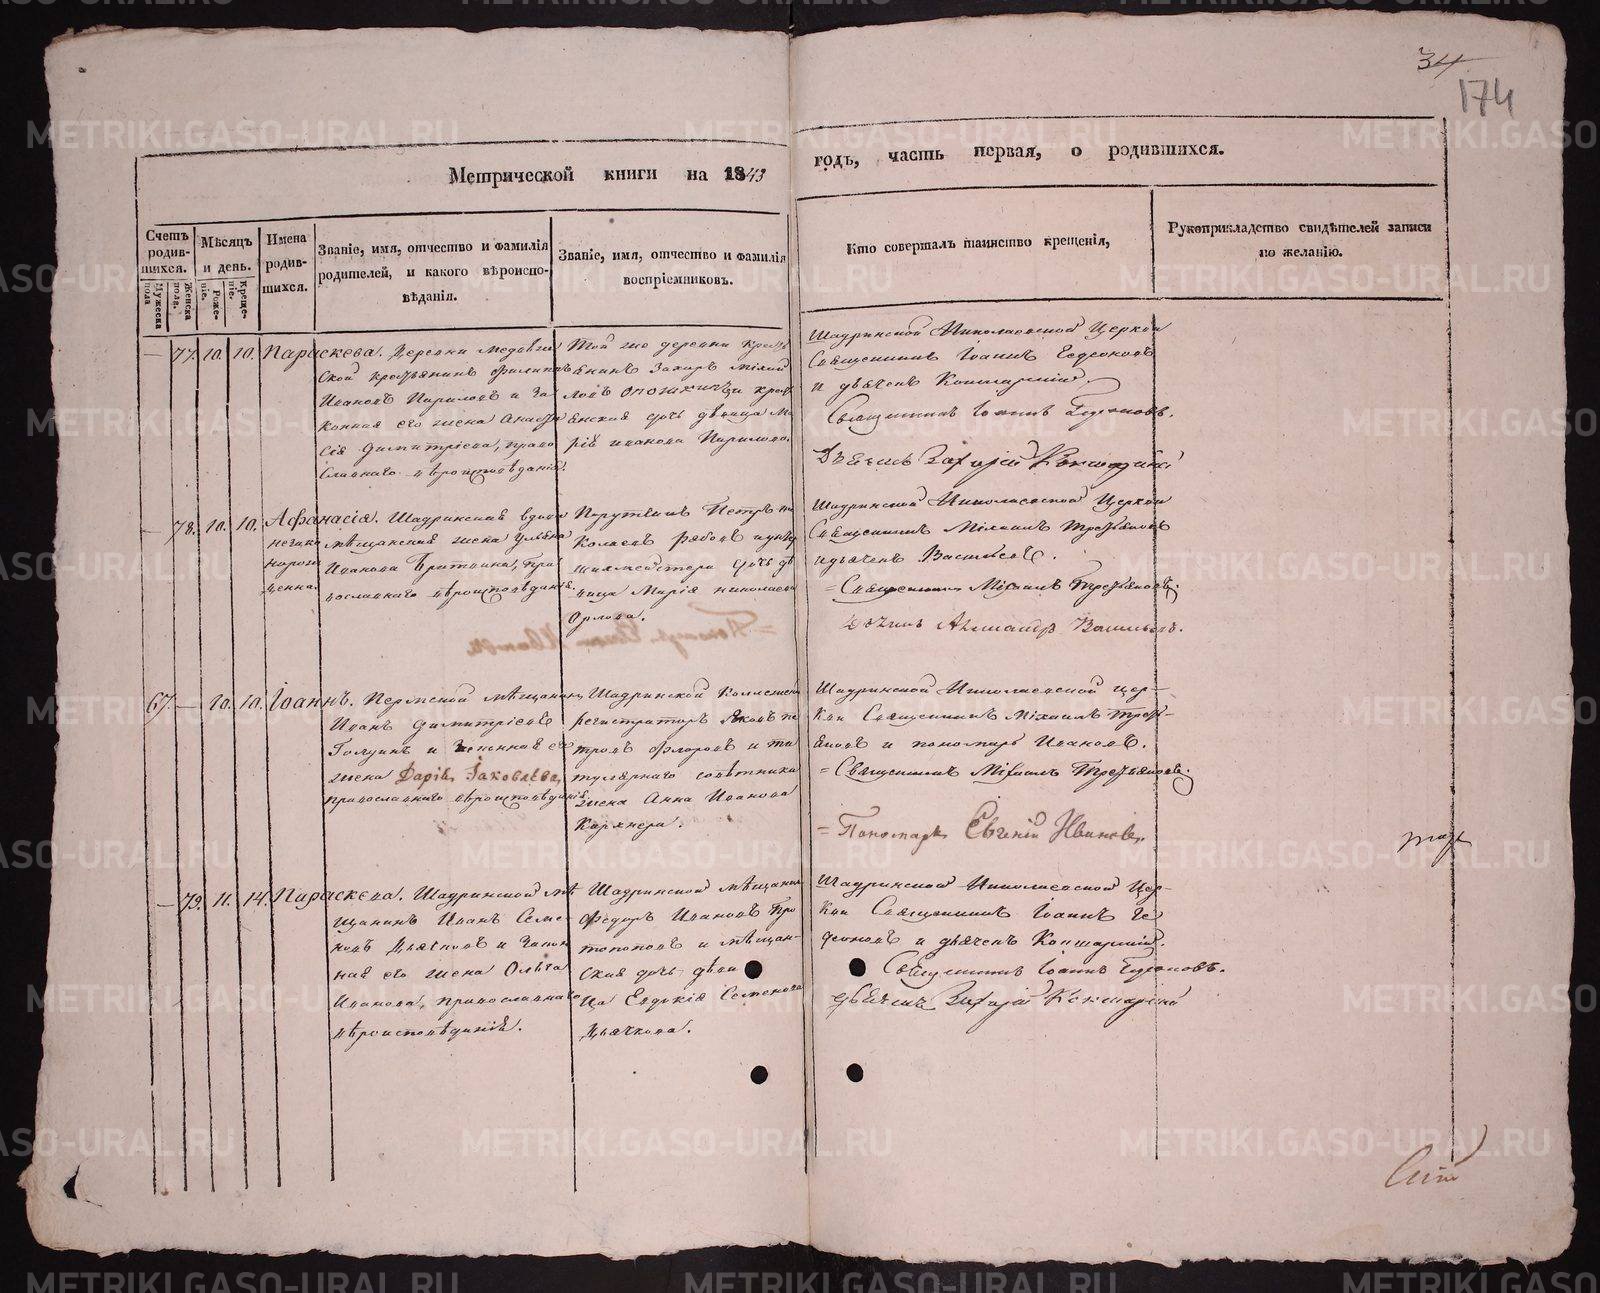 34
174
Метрической книги на 1843 годъ, часть первая, о родившихся.
Счетъ родившихся.
Мужеска пола
Женска пола.
Мѣсяцъ и день.
Рожденіе.
Крещеніе.
Имена родившихся.
Званіе, имя, отчество и фамилія
родителей, и какого вѣроиспо-
вѣданія.
Званіе, имя, отчество и фамилія
воспріемниковъ.
Кто совершалъ таинство крещенія,
Рукоприкладство свидѣтелей записи
по желанію.
77. 10. 10. Параскева. Деревни
ской крестьянинъ Филиппъ
Ивановъ и за
конная его жена Анаста
сія Димитріева, право
славнаго вѣроисповѣданія.
Той же деревни кресть
янинъ Захаръ
и кресть
янская дочь дѣвица Ма
рія Иванова
Шадринской Николаевской Церкви
Священникъ Іоаннъ Гедеоновъ
и дьячекъ Кокшарскій
Священникъ Іоаннъ Гедеоновъ.
Дьячекъ Захарій Кокшарскій
78. 10. 10. Афанасія. Шадринская вдова
незаконнорожденна.
мѣщанская жена Ульяна
Иванова пра
вославнаго вѣроисповѣданія.
Петръ Ни
колаевъ дочь дѣ
вица Марія Николаева
Орлова.
Шадринской Николаевской Церкви
Священникъ Михаилъ Третьяковъ
и дьячекъ Васильевъ.
= Священникъ Михаилъ Третьяковъ.
Дьячекъ Александръ Васильевъ.
67. 10. 10. Іоаннъ. Пермской мѣщанинъ
Иванъ Димитріевъ
и законная его
жена Дарія Іаковлева,
православнаго вѣроисповѣданія.
Шадринской Коллежскій
регистраторъ Яковъ Пе
тровъ Флоровъ и ти
тулярнаго совѣтника
жена Анна Иванова
Шадринской Николаевской цер-
кви Священникъ Михаилъ Треть-
яковъ и пономарь Ивановъ.
= Священникъ Михаилъ Третьяковъ.
= Пономарь Евгеній Ивановъ.
79. 11. 14. Параскева. Шадринской мѣ
щанинъ Иванъ Семе-
новъ и закон
ная его жена Ольга
Иванова, православнаго
вѣроисповѣданія.
Шадринской мѣщанинъ
Федоръ Ивановъ Про
топоповъ и мѣщан-
ская дочь дѣви
ца Евдокія Семенова
Дьячкова.
Шадринской Николаевской Цер-
кви Священникъ Іоаннъ Ге
деоновъ и дьячекъ Кокшарскій.
Священникъ Іоаннъ Гедеоновъ.
Дьячекъ Захарій Кокшарскій